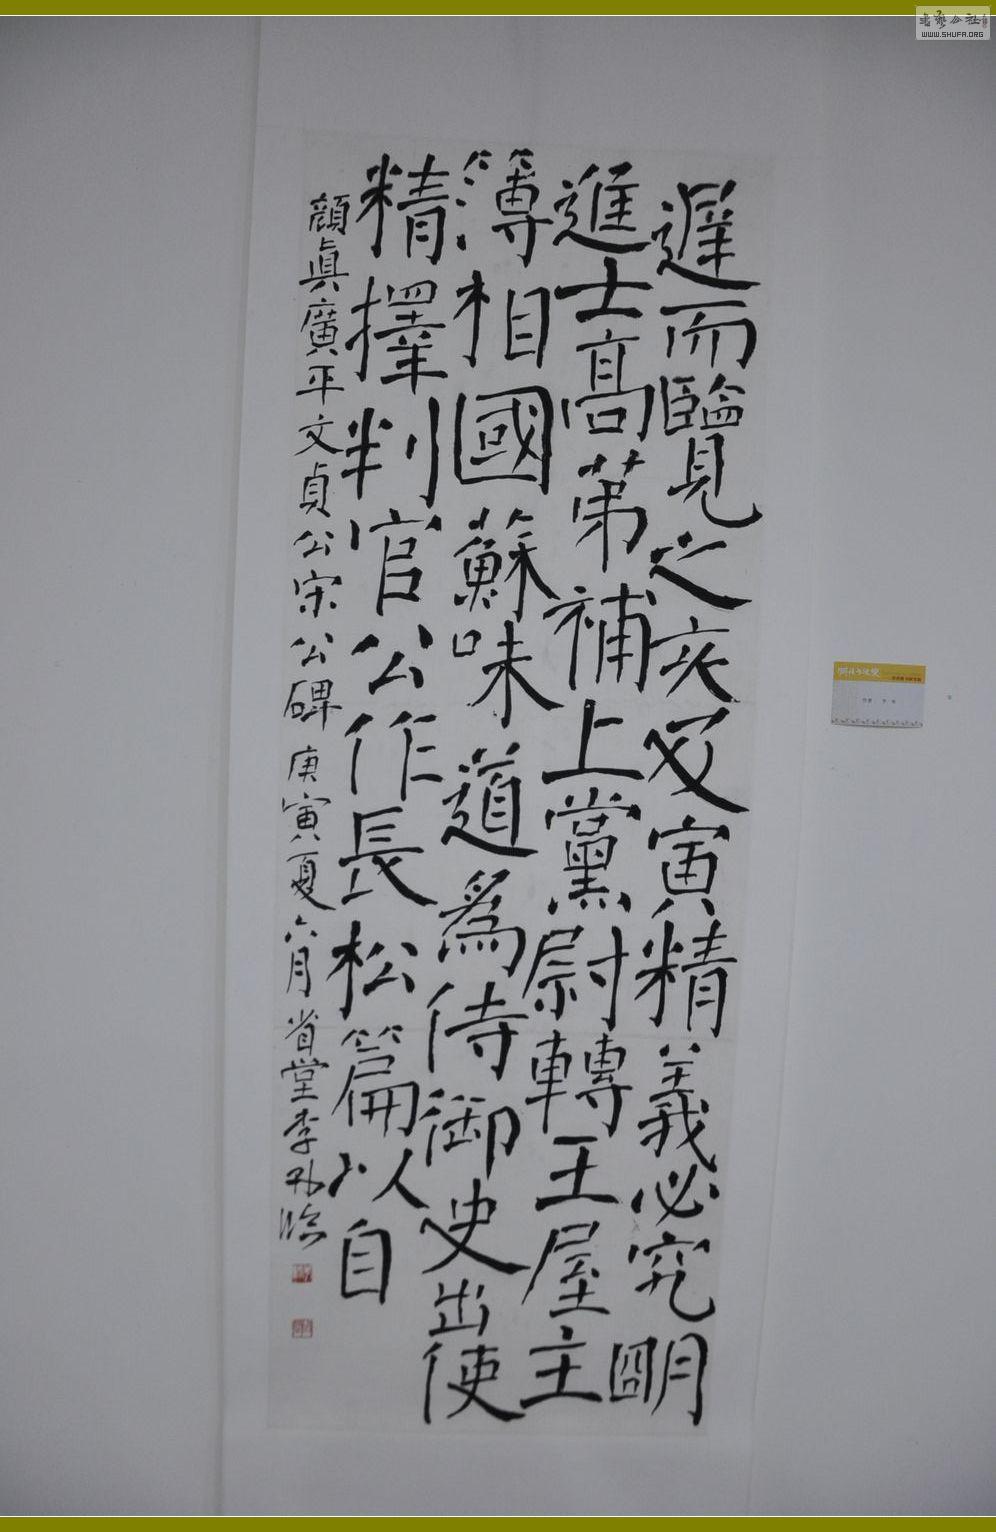 遲而覽之亥及寅精義必究明
進士高苐補上黨尉轉王屋主
簿相國蘇味道為侍御史出使
精擇判官公作長松篇以自
顏真廣平文貞公宋公碑 庚寅夏六月 省堂李 臨
WWW.SHUFA.ORG